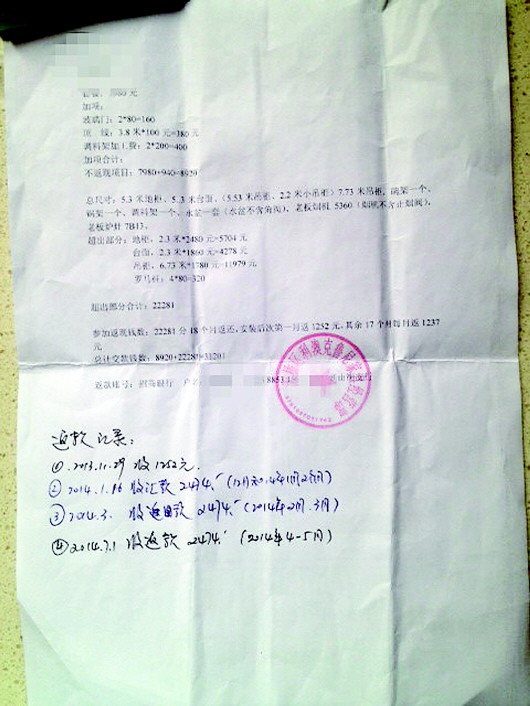 加项：
玻璃门：2*80=160
顶 线：3.8 米*100 元=380元
调料架加工费：2*200=400
加项合计：
不返现项目：7980+940=8920
总尺寸：5.3 米地柜、5.3 米台面、（5.53 米吊柜，2.2 米小吊柜）7.73 米吊柜，碗架一个、
锅架一个、调料架一个、水盆一套（水盆不含角阀）、老板烟机 5360（烟机不含止烟阀）、
老板炉灶 7B13。
超出部分：地柜：2.3 米*2480 元=5704 元
台面：2.3 米*1860 元=4278 元
吊柜：6.73 米*1780 元=11979 元
罗马柱：4*80=320
超出部分合计：22281
参加返现钱数：22281 分 18 个月返还，安装后次第一月返 1252 元，其余 17 个月每月返 1237
元
总计交款钱数：8920+22281=31201
返款账号：招商银行 户名
返款记录：
① 2013.11.29 收 1252元.
② 2014.1.16 收汇款 2474.
③ 2014.3. 收返回款 2474. (2014年2月.3月)
④ 2014.7.1 收返款 2474. (2014年4-5月)